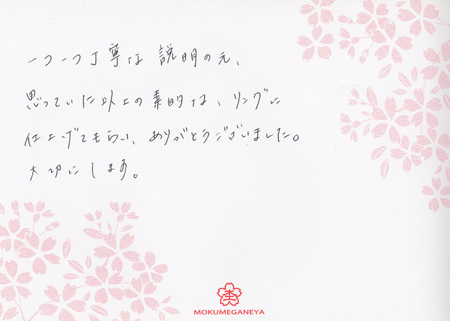 一つ一つ丁寧な説明のえ、
思っていた以上の素的な、リングに
仕上げてもらい、ありがとうございました。
大切にします。
MOKUMEGANEYA